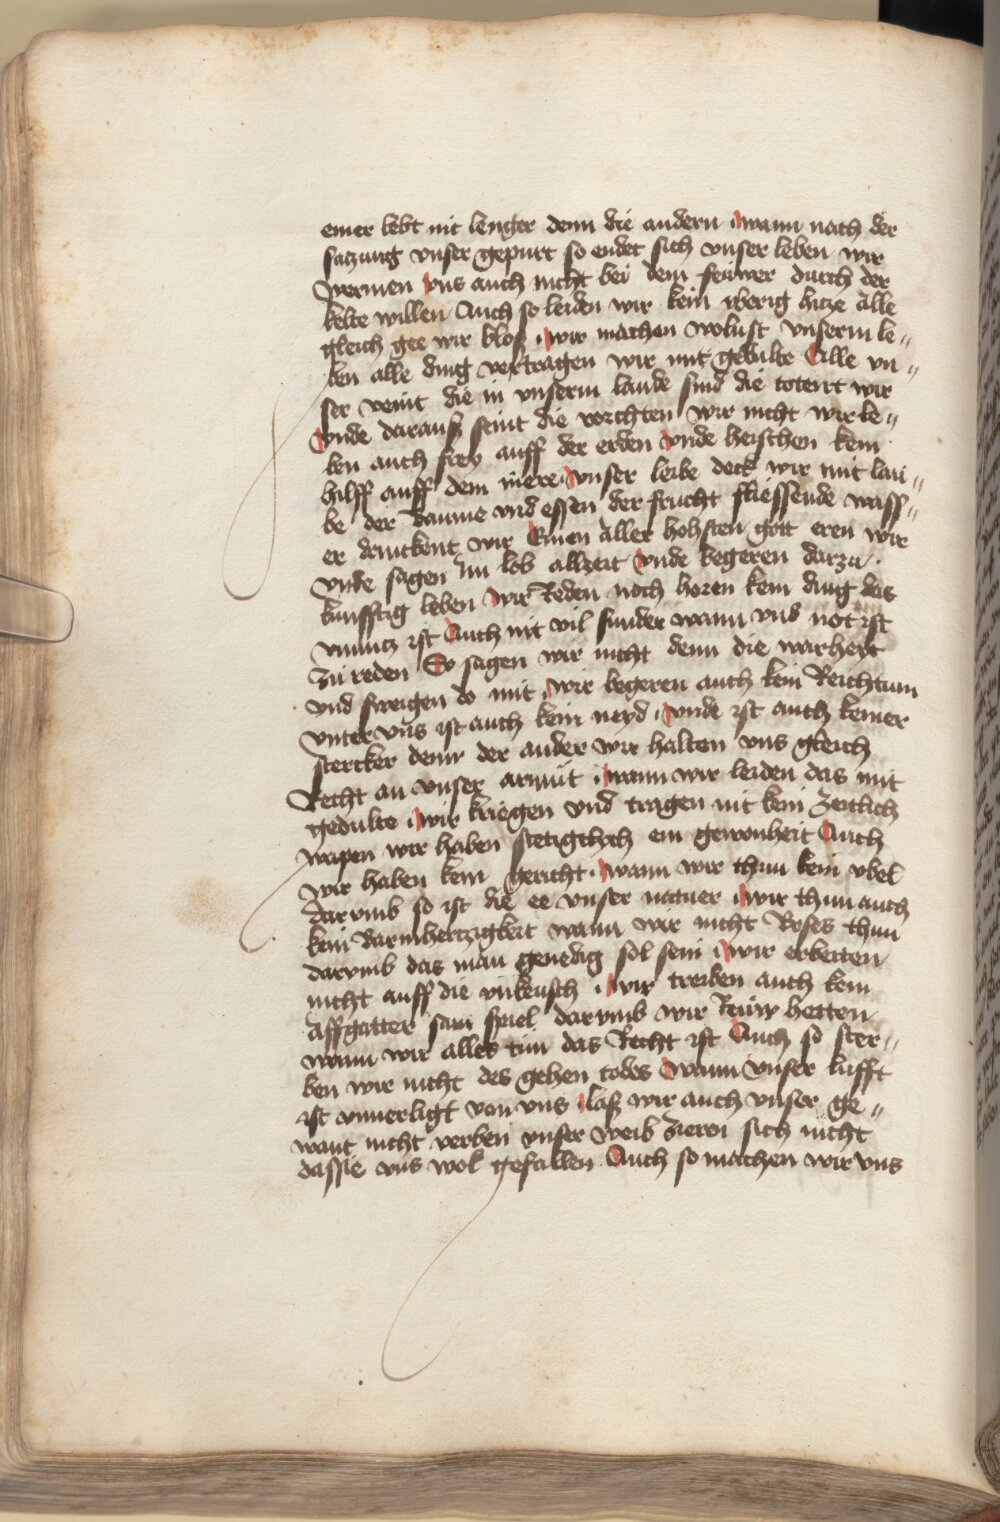 einer lebt nit lenger denn die andern wann nach der
satzung vnser gepurt so endet sich vnser leben wir
wermen vns auch nicht bei dem feuwer durch der
kelte willen Auch so leiden wir kein vberig hitze alle
gleich gee wir bloß wir machen wolust vnserm le„
ben alle ding vertragen wir mit gedulte Alle vn„
ser veint die in vnserm lande sind die totent wir
vnde darauß seint die vorchten wir nicht wir le„
ben auch frey auff der erden vnde heischen kein
hilff auff dem mere vnser leibe deck wir mit lau„
be der baume vnd essen der frucht fliessende wass„
er drinckent wir Einen aller hohsten gott eren wir
vnde sagen Im lob allzeit vnde begeren darzu
kunfftig leben wir Reden noch horen kein ding das
vnnutz ist Auch nit vil sunder wann vns not ist
zu reden So sagen wir nicht denn die warheyt
vnd sweigen do mit wir begeren auch kein Reichtum
vnter vns ist auch kein neyd vnde ist auch keiner
stercker denn der ander wir halten vns gleich
Recht an vnser armut wann wir leiden das mit
gedulte wir kriegen vnd tragen nit kein zeitlich
wapen wir haben stetigclich ein gewonheit Auch
wir haben kein gericht wann wir thun kein vbel
darvmb so ist die ee vnser natuer wir thun auch
kein Barmhertzigkeit wann wir nicht Boses thun
darvmb das man genedig sol sein wir erbeiten
nicht auff die vnkeusch wir treiben auch kein
Affgatter sam spiel darvmb wir Reuw hetten
wann wir alles tun das Recht ist Auch so ster„
ben wir nicht des gehen todes wann vnser lufft
ist vnuerligt von vns laß wir auch vnser ge„
want nicht verben vnser weib zieren sich nicht
dassie vns wol gefallen Auch so machen wir vns